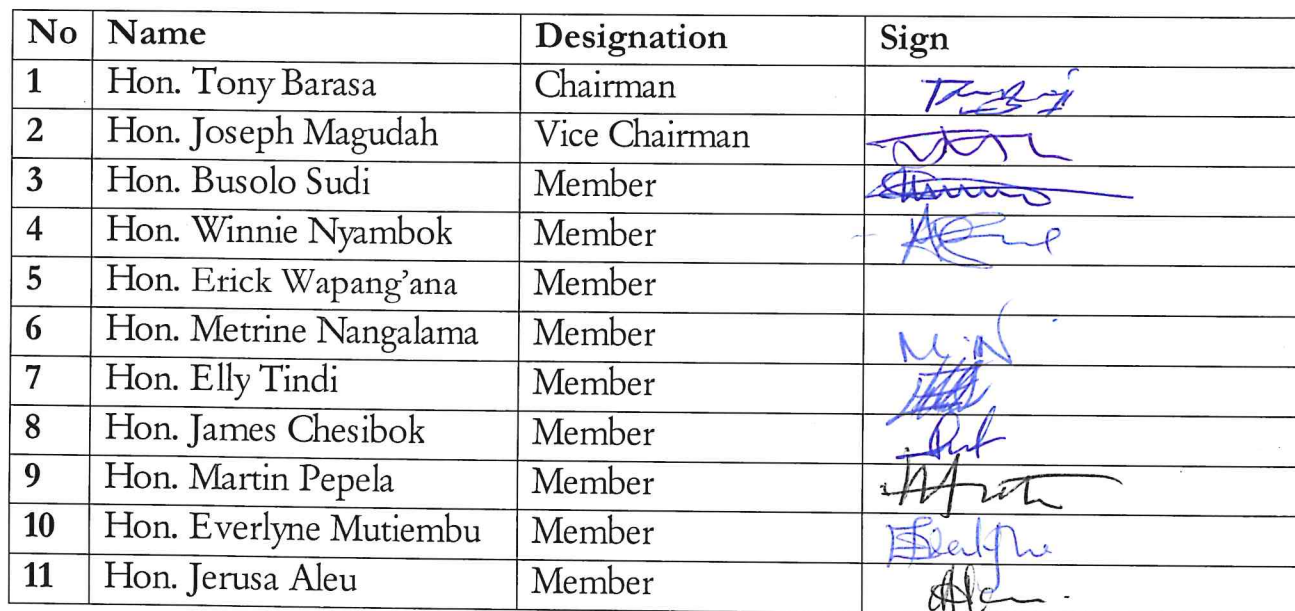 No Name Designation Sign
1 Hon. Tony Barasa Chairman
2 Hon. Joseph Magudah Vice Chairman
3 Hon. Busolo Sudi Member
4 Hon. Winnie Nyambok Member
5 Hon. Erick Wapang’ana Member
6 Hon. Metrine Nangalama Member
7 Hon. Elly Tindi Member
8 Hon. James Chesibok Member
9 Hon. Martin Pepela Member
10 Hon. Everlyne Mutiembu Member
11 Hon. Jerusa Aleu Member